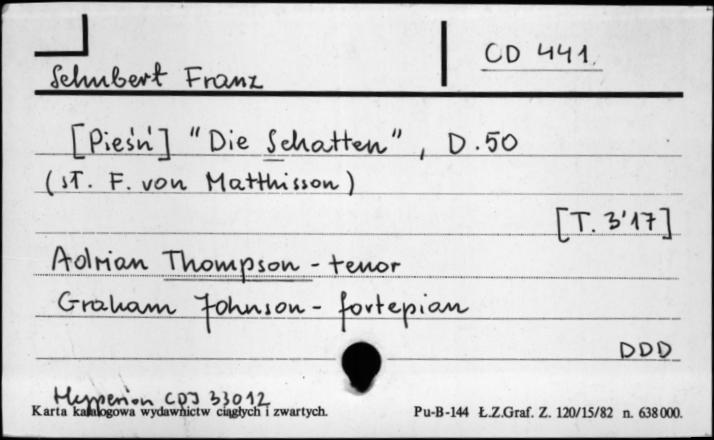 CD 441
Schubert Franz
[Pieśń] "Die Schatten", D.50
(sł. F. von Matthisson)
[T. 3'17]
Adrian Thompson - tenor
Graham Johnson - fortepian
DDD
Hyperion CDJ 33012
Karta katalogowa wydawnictw ciągłych i zwartych.
Pu-B-144 Ł.Z.Graf. Z. 120/15/82 n. 638000.